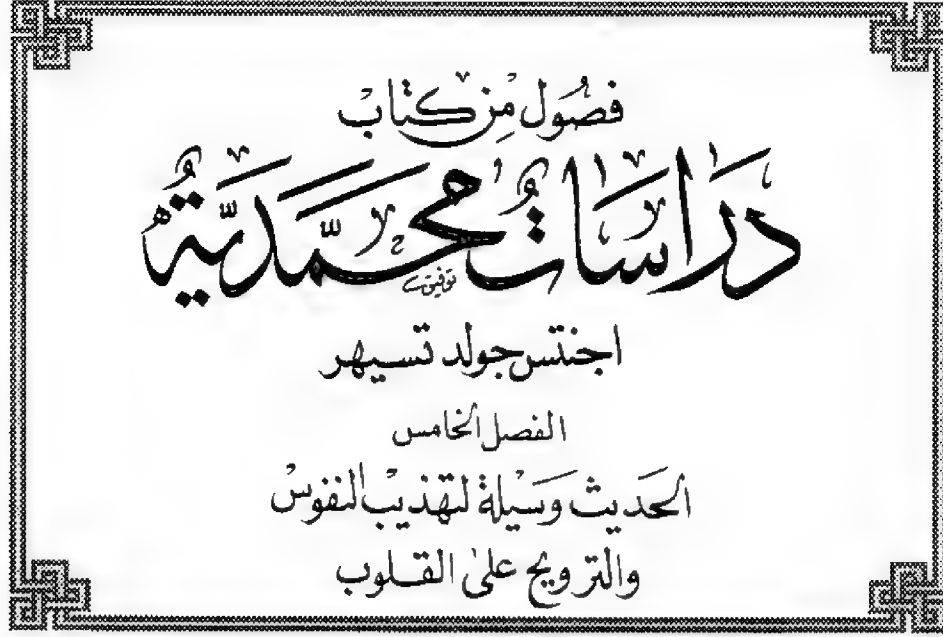 فصُول مِن كتابْ
دَرَاسَاتٌ محمَّديَّةٌ
توفيق
اجنتس جولد تسيهر
الفصل الخامس
الحَديث وَسيلة لتهذيب النفوسْ
والترويح على القلوب